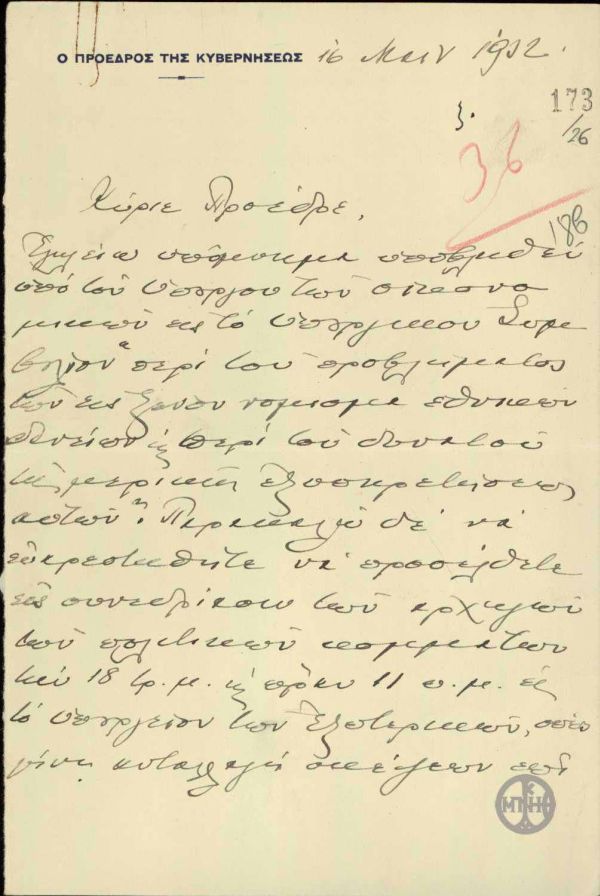 Ο ΠΡΟΕΔΡΟΣ ΤΗΣ ΚΥΒΕΡΝΗΣΕΩΣ 16 Μαΐου 1932.
173
/26
36
186
Κύριε Πρόεδρε,
υπόμνημα υποβληθέν
υπό του Υπουργού των Οικονο
μικών εις το Υπουργικόν Συμ
βούλιον "περί του προβλήματος
των εις ξένον νόμισμα εθνικών
δανείων και περί του δυνατού
της μερικής εξυπηρετήσεως
αυτών". Παρακαλώ δε να
ευαρεστηθήτε να προσέλθετε
εις συνεδρίασιν των αρχηγών
των πολιτικών κομμάτων
την 18 τ.μ. και ώραν 11 π.μ. εις
το Υπουργείον των Εξωτερικών, όπως
γίνη ανταλλαγή σκέψεων επί
ΜΠΗ